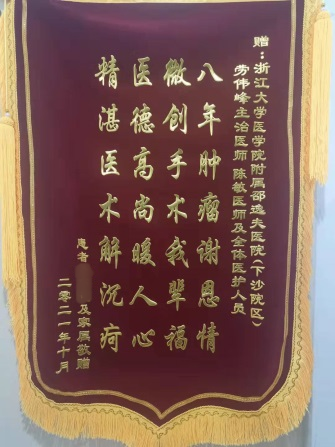 赠：浙江大学医学院附属邵逸夫医院（下沙院区）
劳伟峰主治医师 陈敏医师及全体医护人员
八年肿瘤谢恩情
微创手术我辈福
医德高尚暖人心
精湛医术解沉疴
患者 及家属敬赠
二零二一年十月